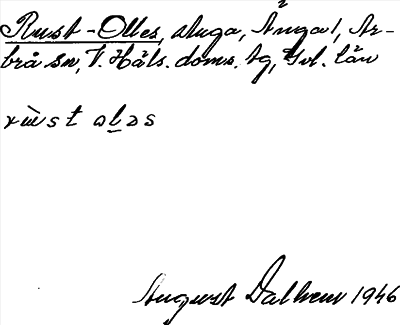 Rust-Olles, stuga, Änga 1, Ar-
brå sn, V. Häls. doms. tg, Gvl. län
rɯ̀s t ol̠əs
August Dalheur 1946